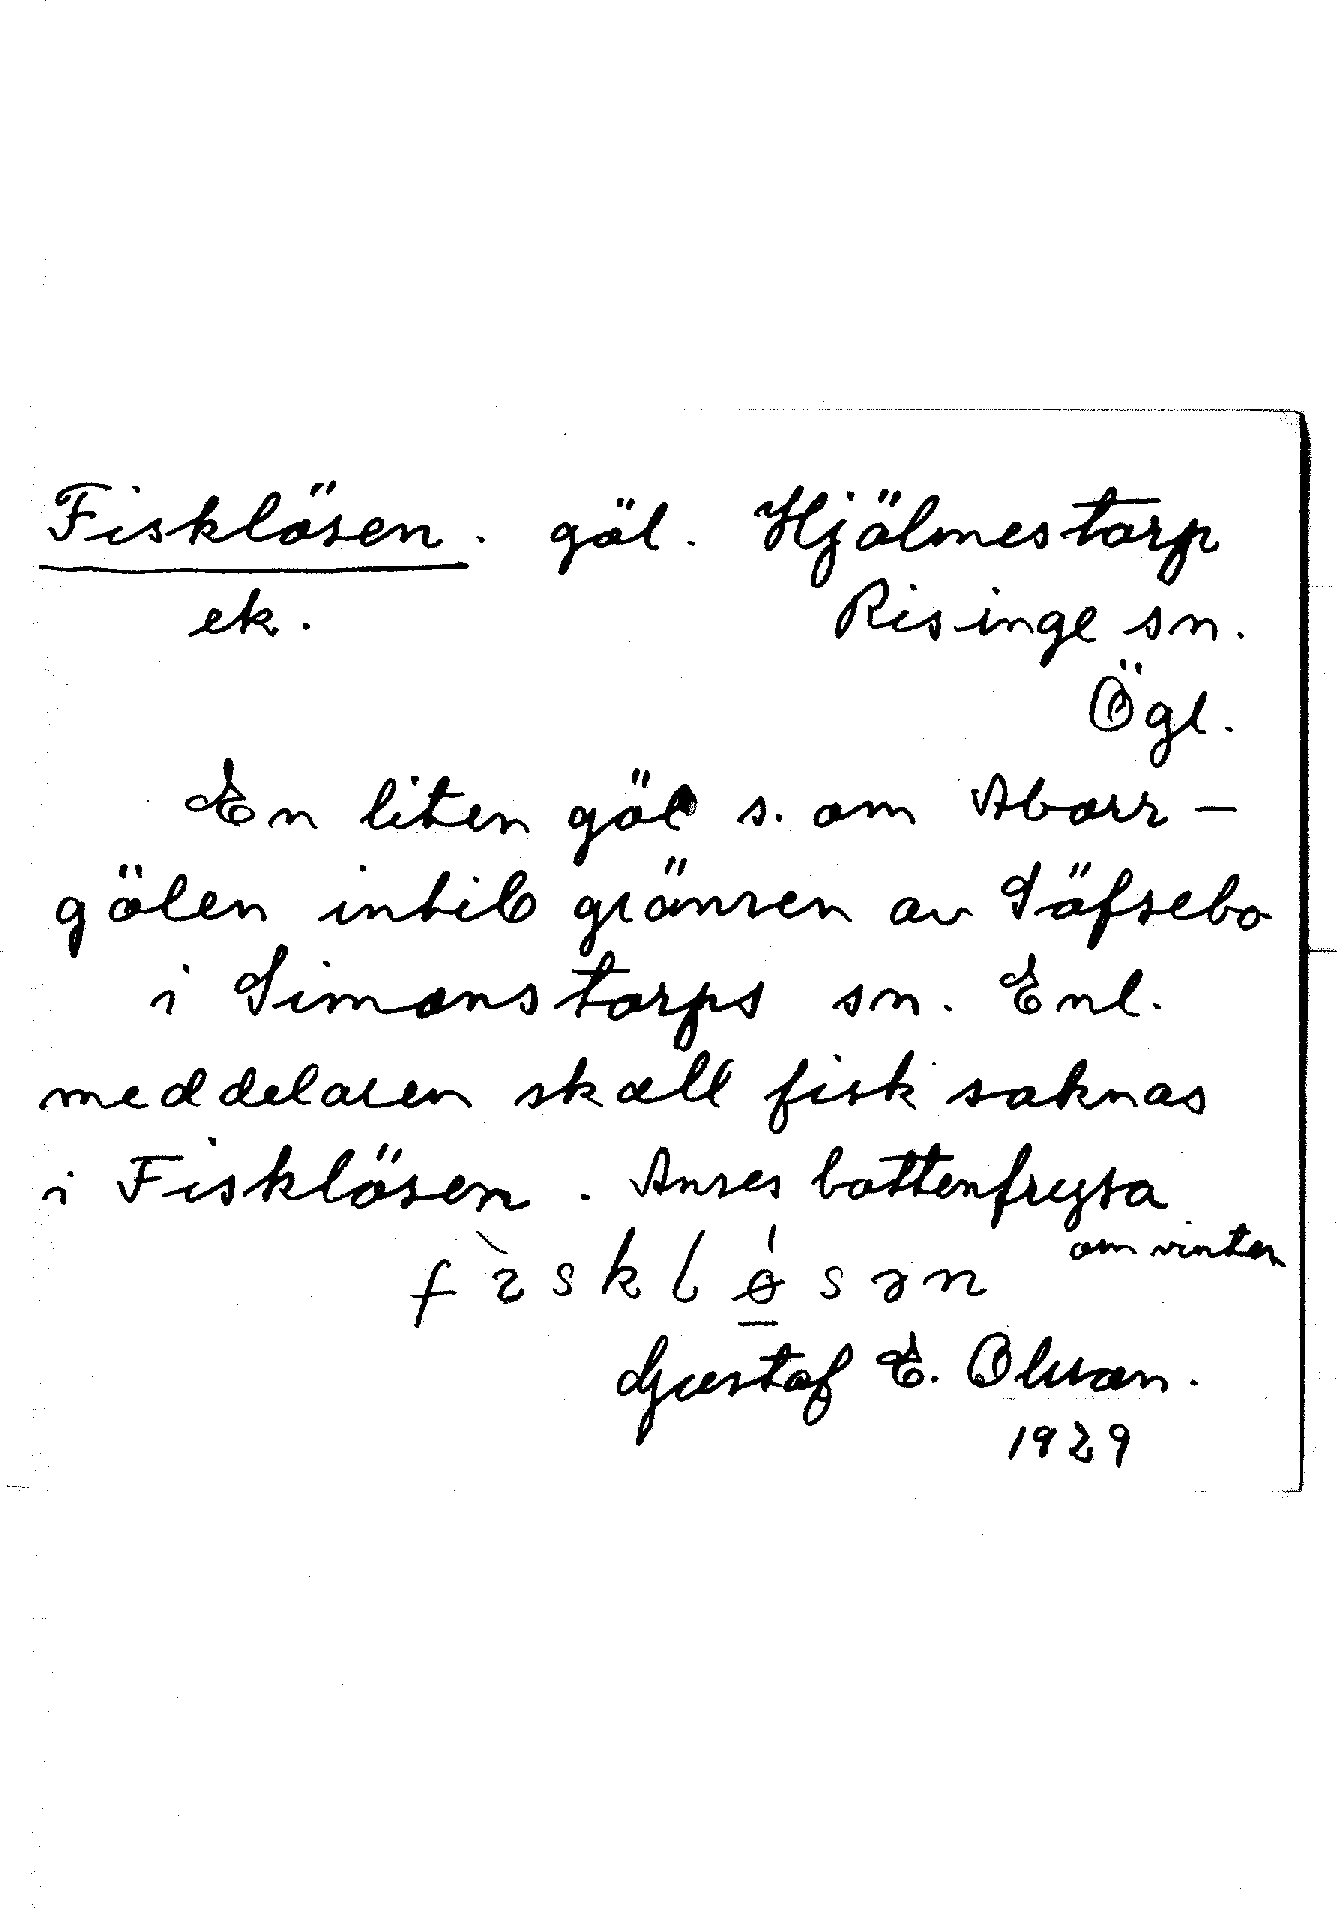 Fisklösen. göl. Hjälmestorp
ek. Risinge sn.
Ögl.
En liten göl s. om Aborr-
gölen intill gränsen av Säfsebo
i Simonstorps sn. Enl.
meddelaren skall fisk saknas
i Fisklösen. Anses bottenfrysa
om vintern
Gustaf E. Olsson.
1929